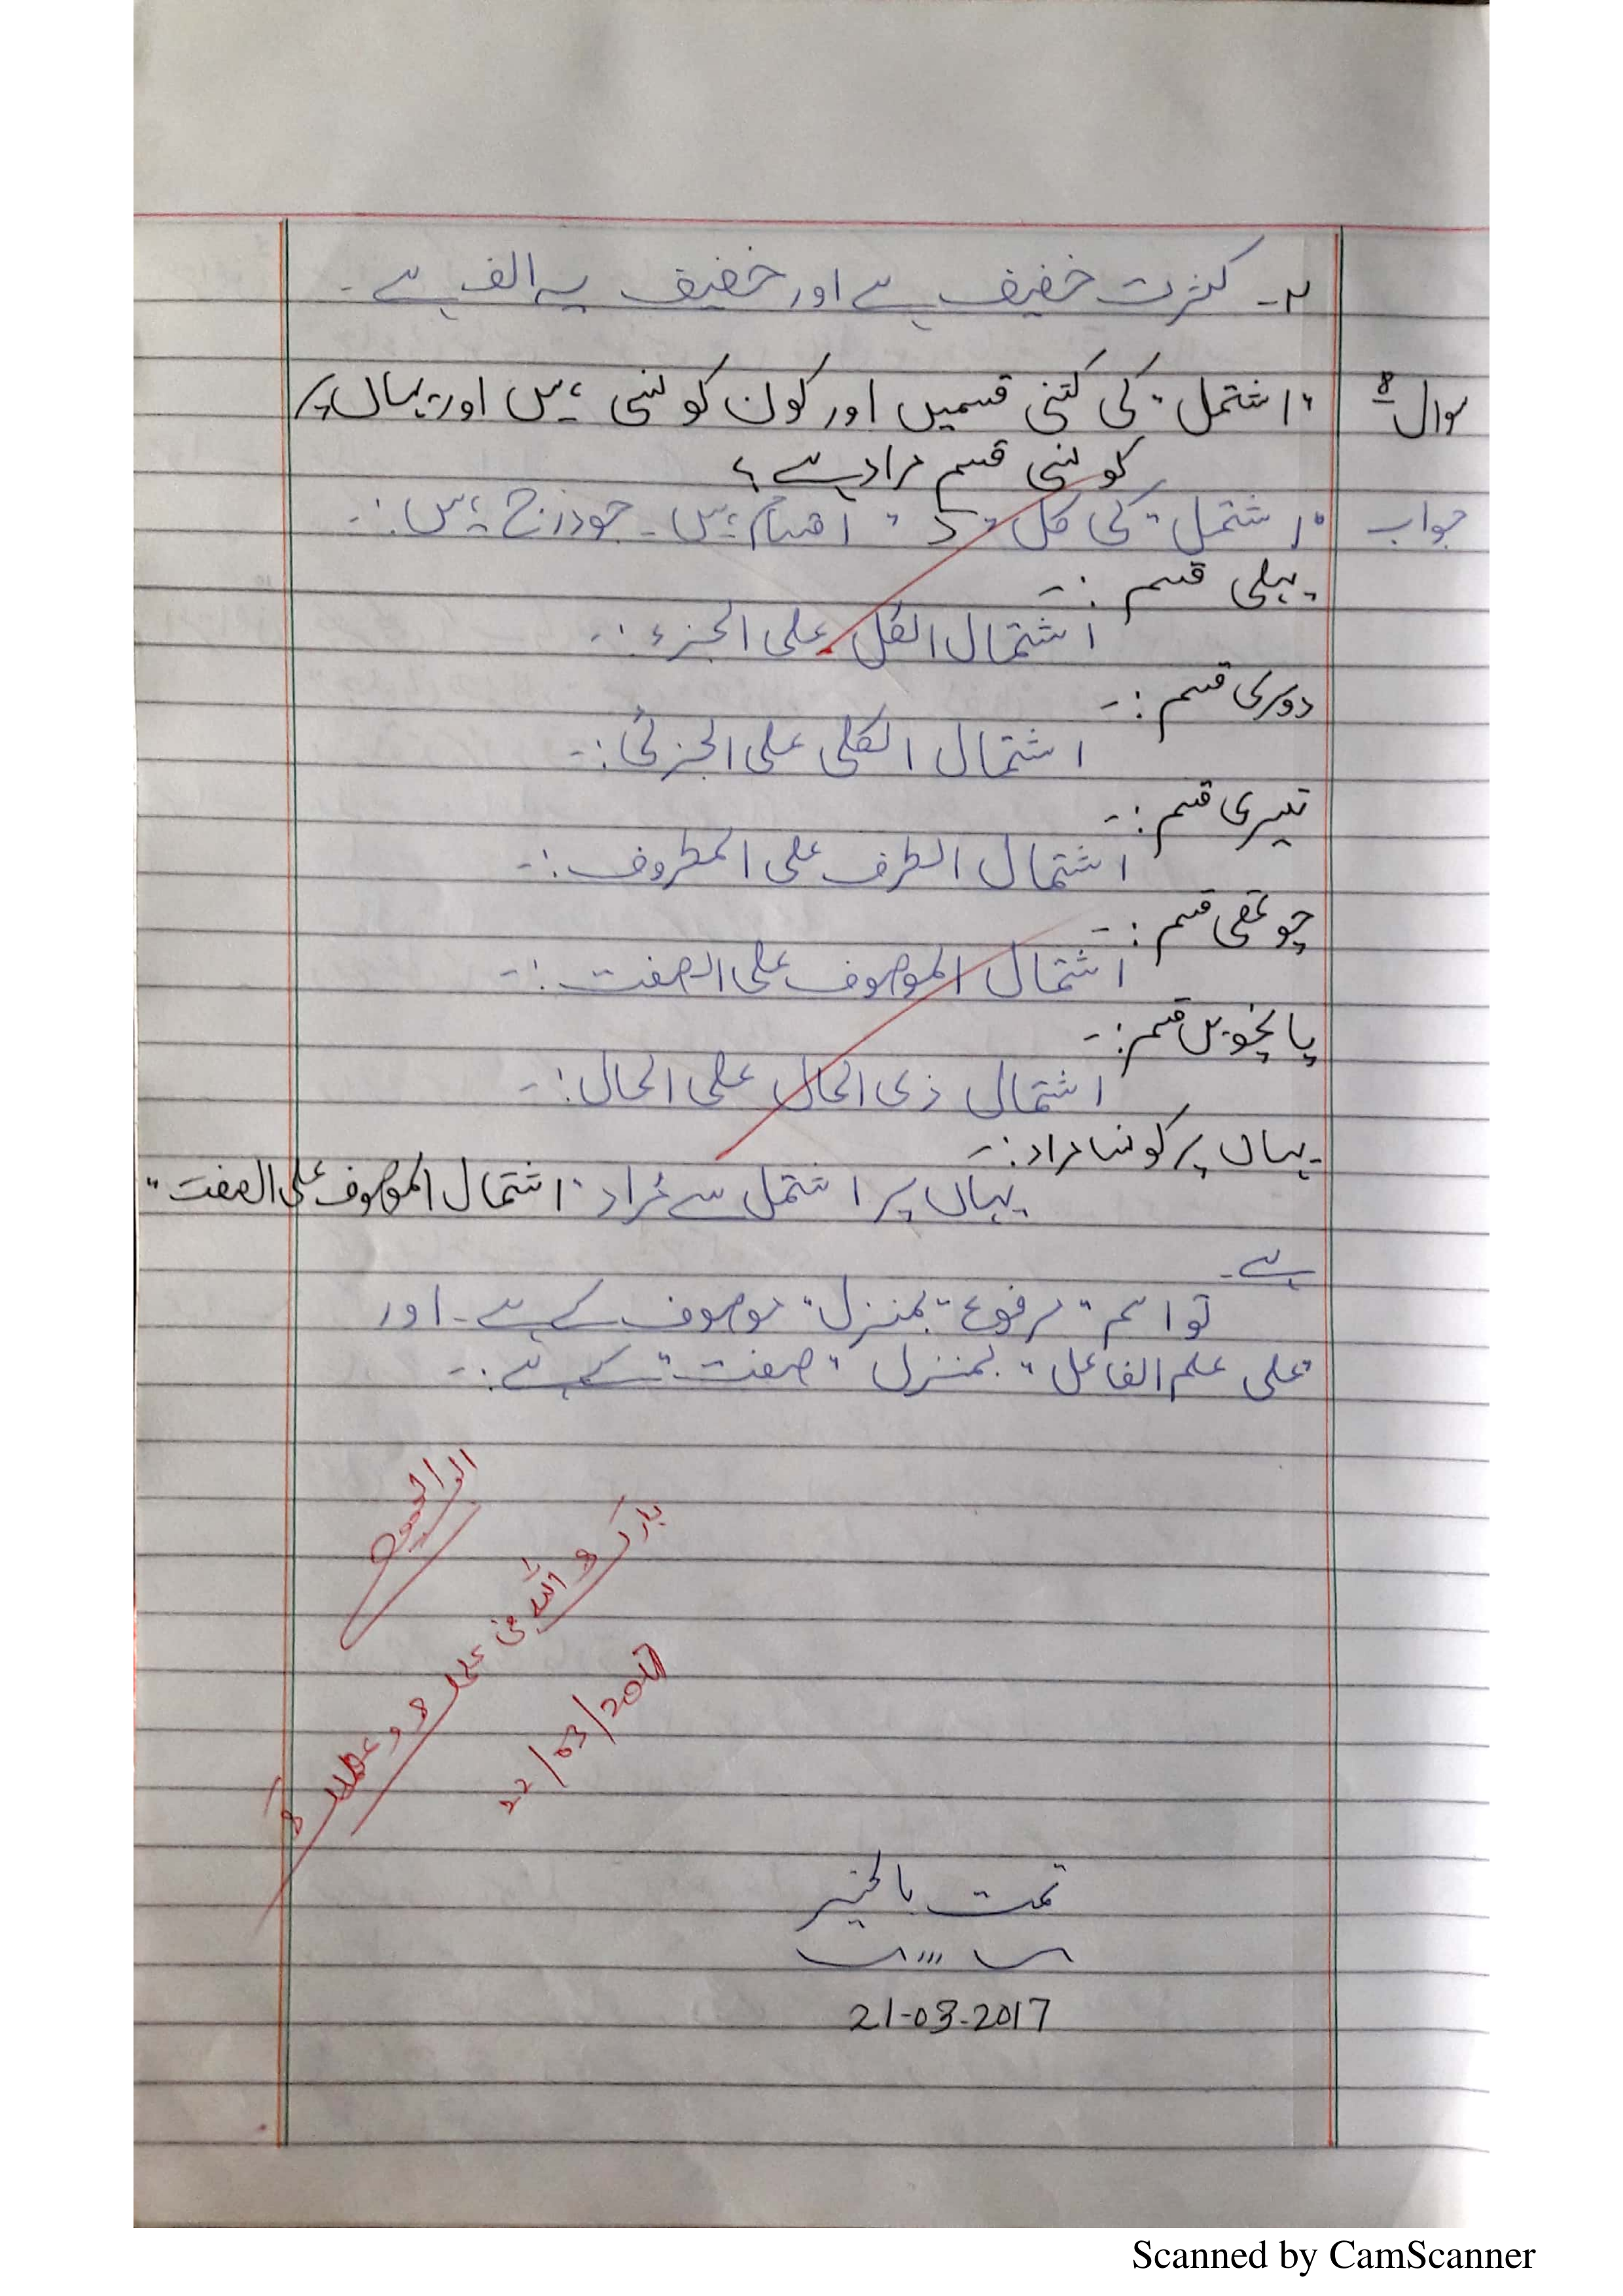 ۲۔ کثرت خفیف ہے اور خفیف پہ الف ہے۔
سوال ۸ "اشتمل" کی کتنی قسمیں اور کون کونسی ہیں اور یہاں پر
کونسی قسم مراد ہے؟
جواب "اشتمل" کی کل "5" اقسام ہیں۔ جو درج ہیں:۔
پہلی قسم :۔
اشتمال الکل علی الجزء :۔
دوسری قسم :۔
اشتمال الکلی علی الجزئی :۔
تیسری قسم :۔
اشتمال الظرف علی المظروف :۔
چوتھی قسم :۔
اشتمال الموصوف علی الصفت :۔
پانچویں قسم :۔
اشتمال ذی الحال علی الحال :۔
یہاں پر کونسا مراد :۔
یہاں پر اشتمل سے مُراد "اشتمال الموصوف علی الصفت"
ہے۔
تو اسم "مرفوع" بمنزل "موصوف کے ہے۔ اور
"علی علم الفاعل" بمنزل "صفت" کے ہے :۔
بارک اللہ فی علمہ و عملہ
22/03/2017
تمت بالخیر
21-03-2017
Scanned by CamScanner